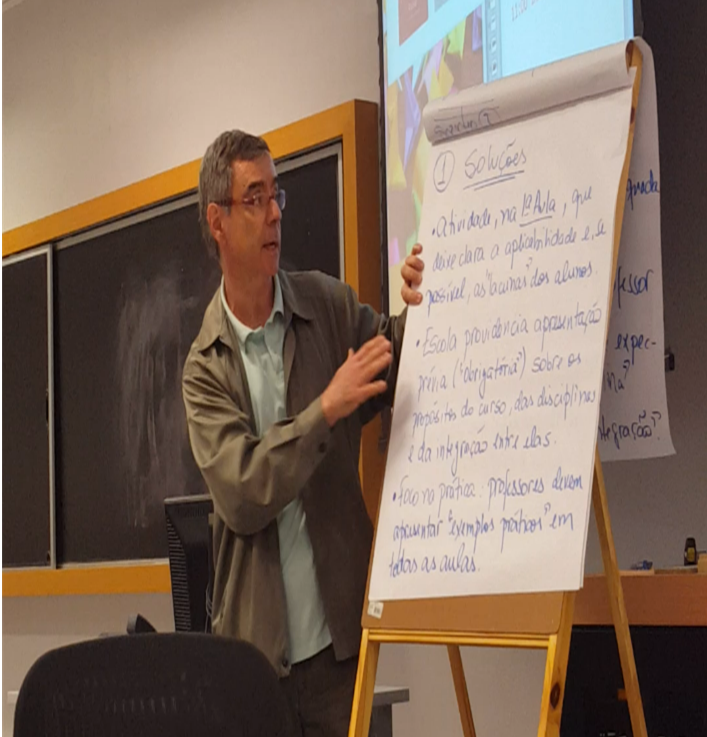 ① Soluções
• Atividade, na 1ª Aula, que
deixe clara a aplicabilidade e, se
possível, as "lacunas" dos alunos.
• Escola providencia apresentação
prévia ("obrigatória") sobre os
propósitos do curso, das disciplinas
e da integração entre elas.
• Foco na prática: professores devem
apresentar "exemplos práticos" em
todas as aulas.
fessor
expec-
na?
ntegração?